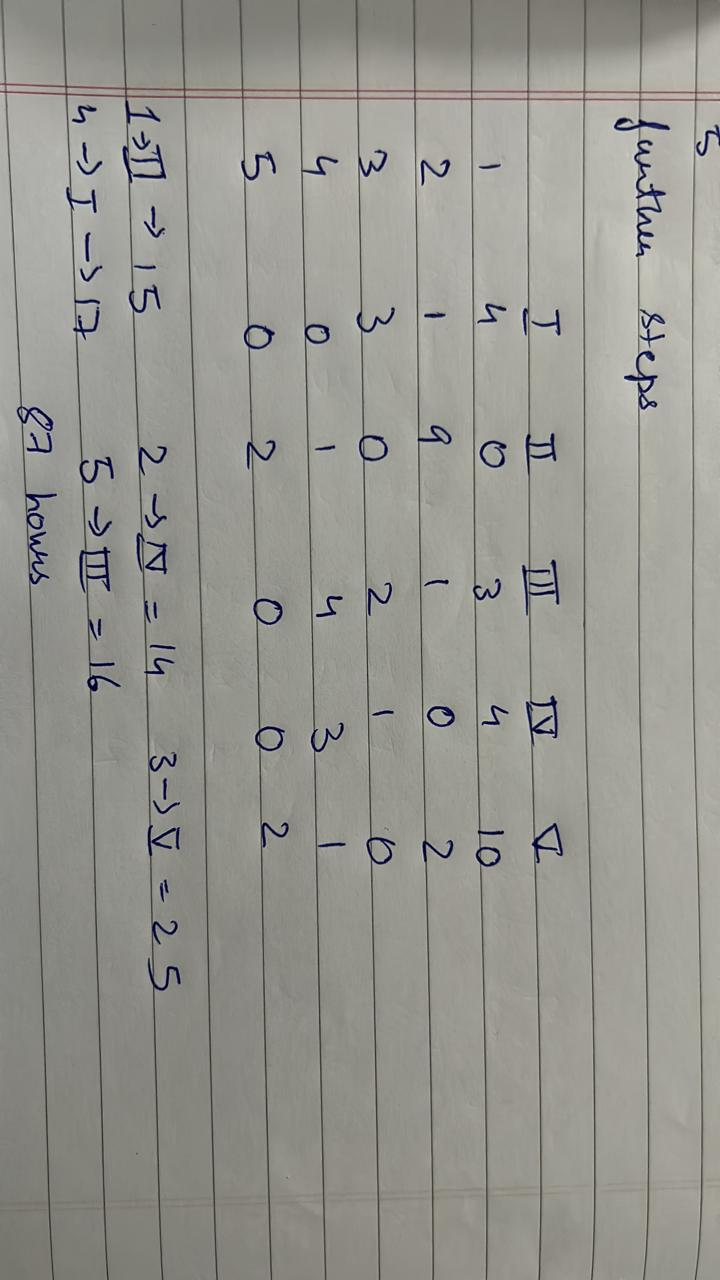 5
further steps
I II III IV V
1 4 0 3 4 10
2 1 9 1 0 2
3 3 0 2 1 0
4 0 1 4 3 1
5 0 2 0 0 2
1→II → 15 2→IV = 14 3→V = 25
4→I→17 5→III = 16
87 hours